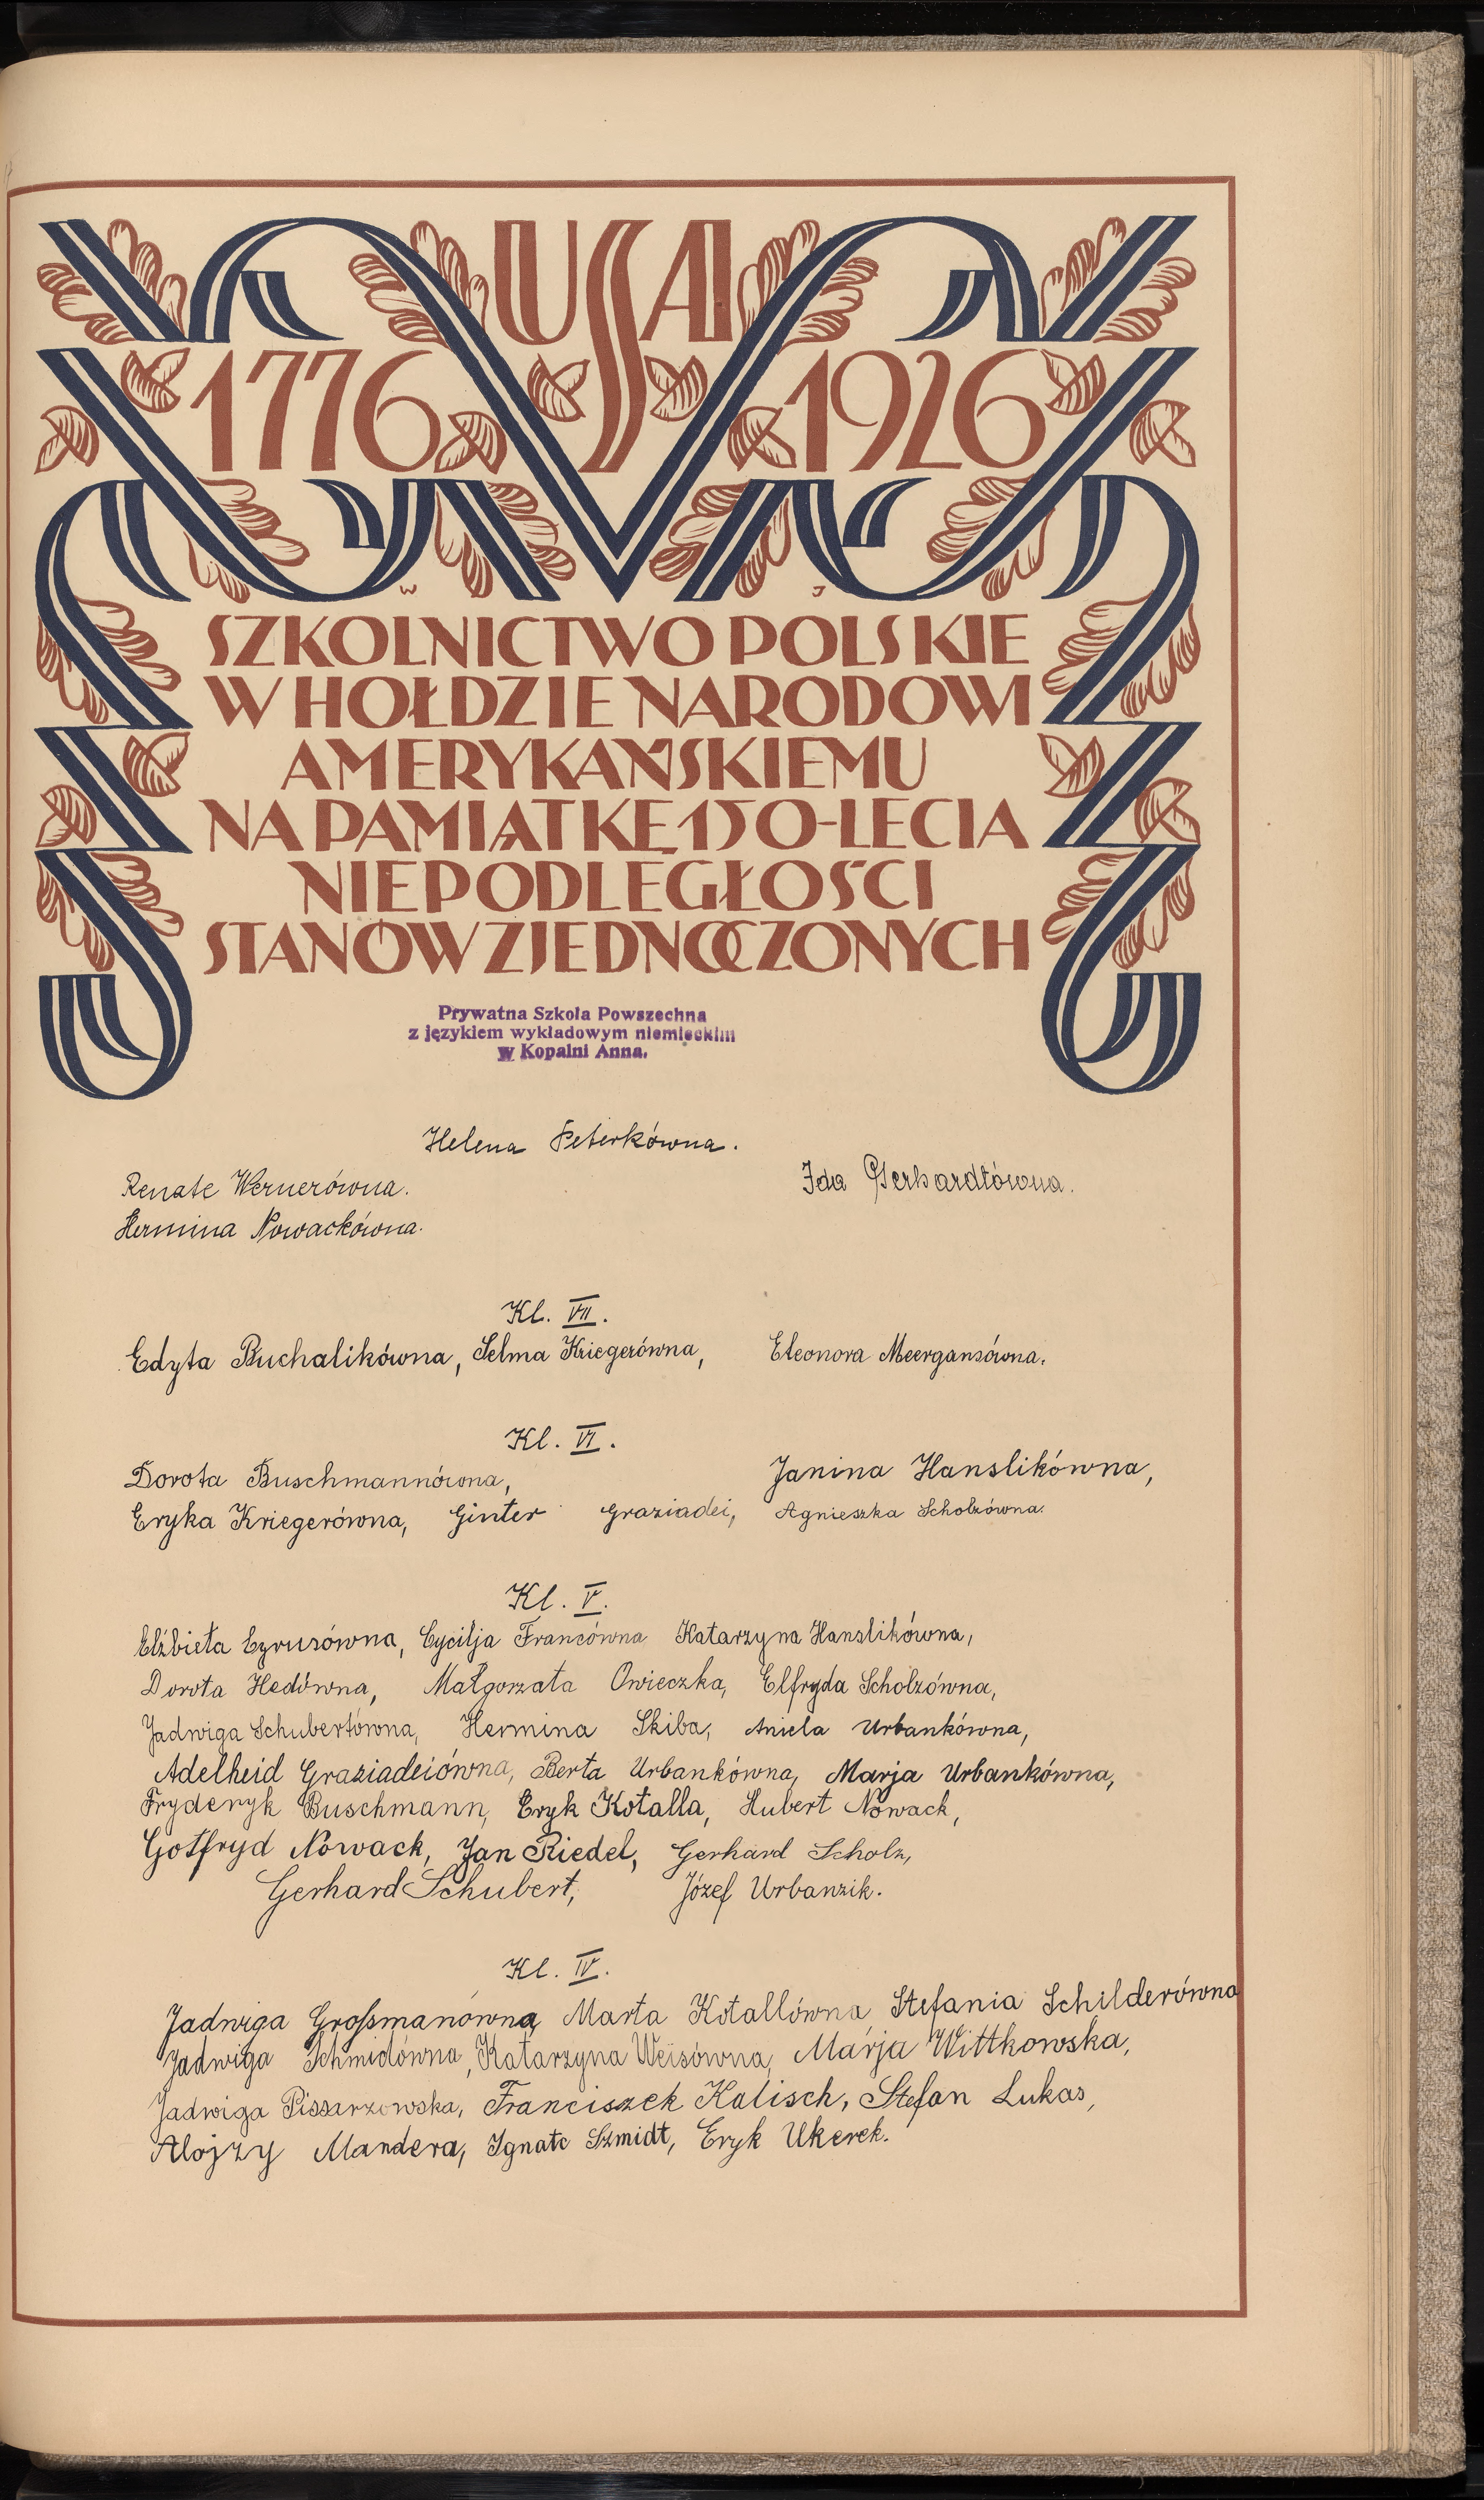 USA
1776 1926
W J
SZKOLNICTWO POLSKIE
W HOŁDZIE NARODOWI
AMERYKAŃSKIEMU
NA PAMIĄTKĘ 150-LECIA
NIEPODLEGŁOŚCI
STANÓW ZJEDNOCZONYCH
Prywatna Szkoła Powszechna
z językiem wykładowym niemieckim
w Kopalni Anna.
Helena Peterkówna.
Renate Wernerówna. Ida Gerhardtówna.
Hermina Nowackówna.
Kl. VII.
Edyta Buchalikówna, Selma Kriegerówna, Eleonora Meergansówna.
Kl. VI.
Dorota Buschmannówna, Janina Hanslikówna,
Eryka Kriegerówna, Ginter Graziadei, Agnieszka Scholzówna.
Kl. V.
Elżbieta Cyrusówna, Cycilja Francówna Katarzyna Hanslikówna,
Dorota Hedówna, Małgorzata Owieczka, Elfryda Scholzówna,
Jadwiga Schubertówna, Hermina Skiba, Aniela Urbankówna,
Adelheid Graziadeiówna, Berta Urbankówna, Marja Urbankówna,
Fryderyk Buschmann, Eryk Kotalla, Hubert Nowack,
Gotfryd Nowack, Jan Riedel, Gerhard Scholz,
Gerhard Schubert, Józef Urbanzik.
Kl. IV.
Jadwiga Großmanówna, Marta Kotallówna, Stefania Schilderówna
Jadwiga Schmidówna, Katarzyna Weisówna, Marja Wittkowska,
Jadwiga Pissarzowska, Franciszek Kalisch, Stefan Lukas,
Alojzy Mandera, Ignatc Szmidt, Eryk Ukerek.